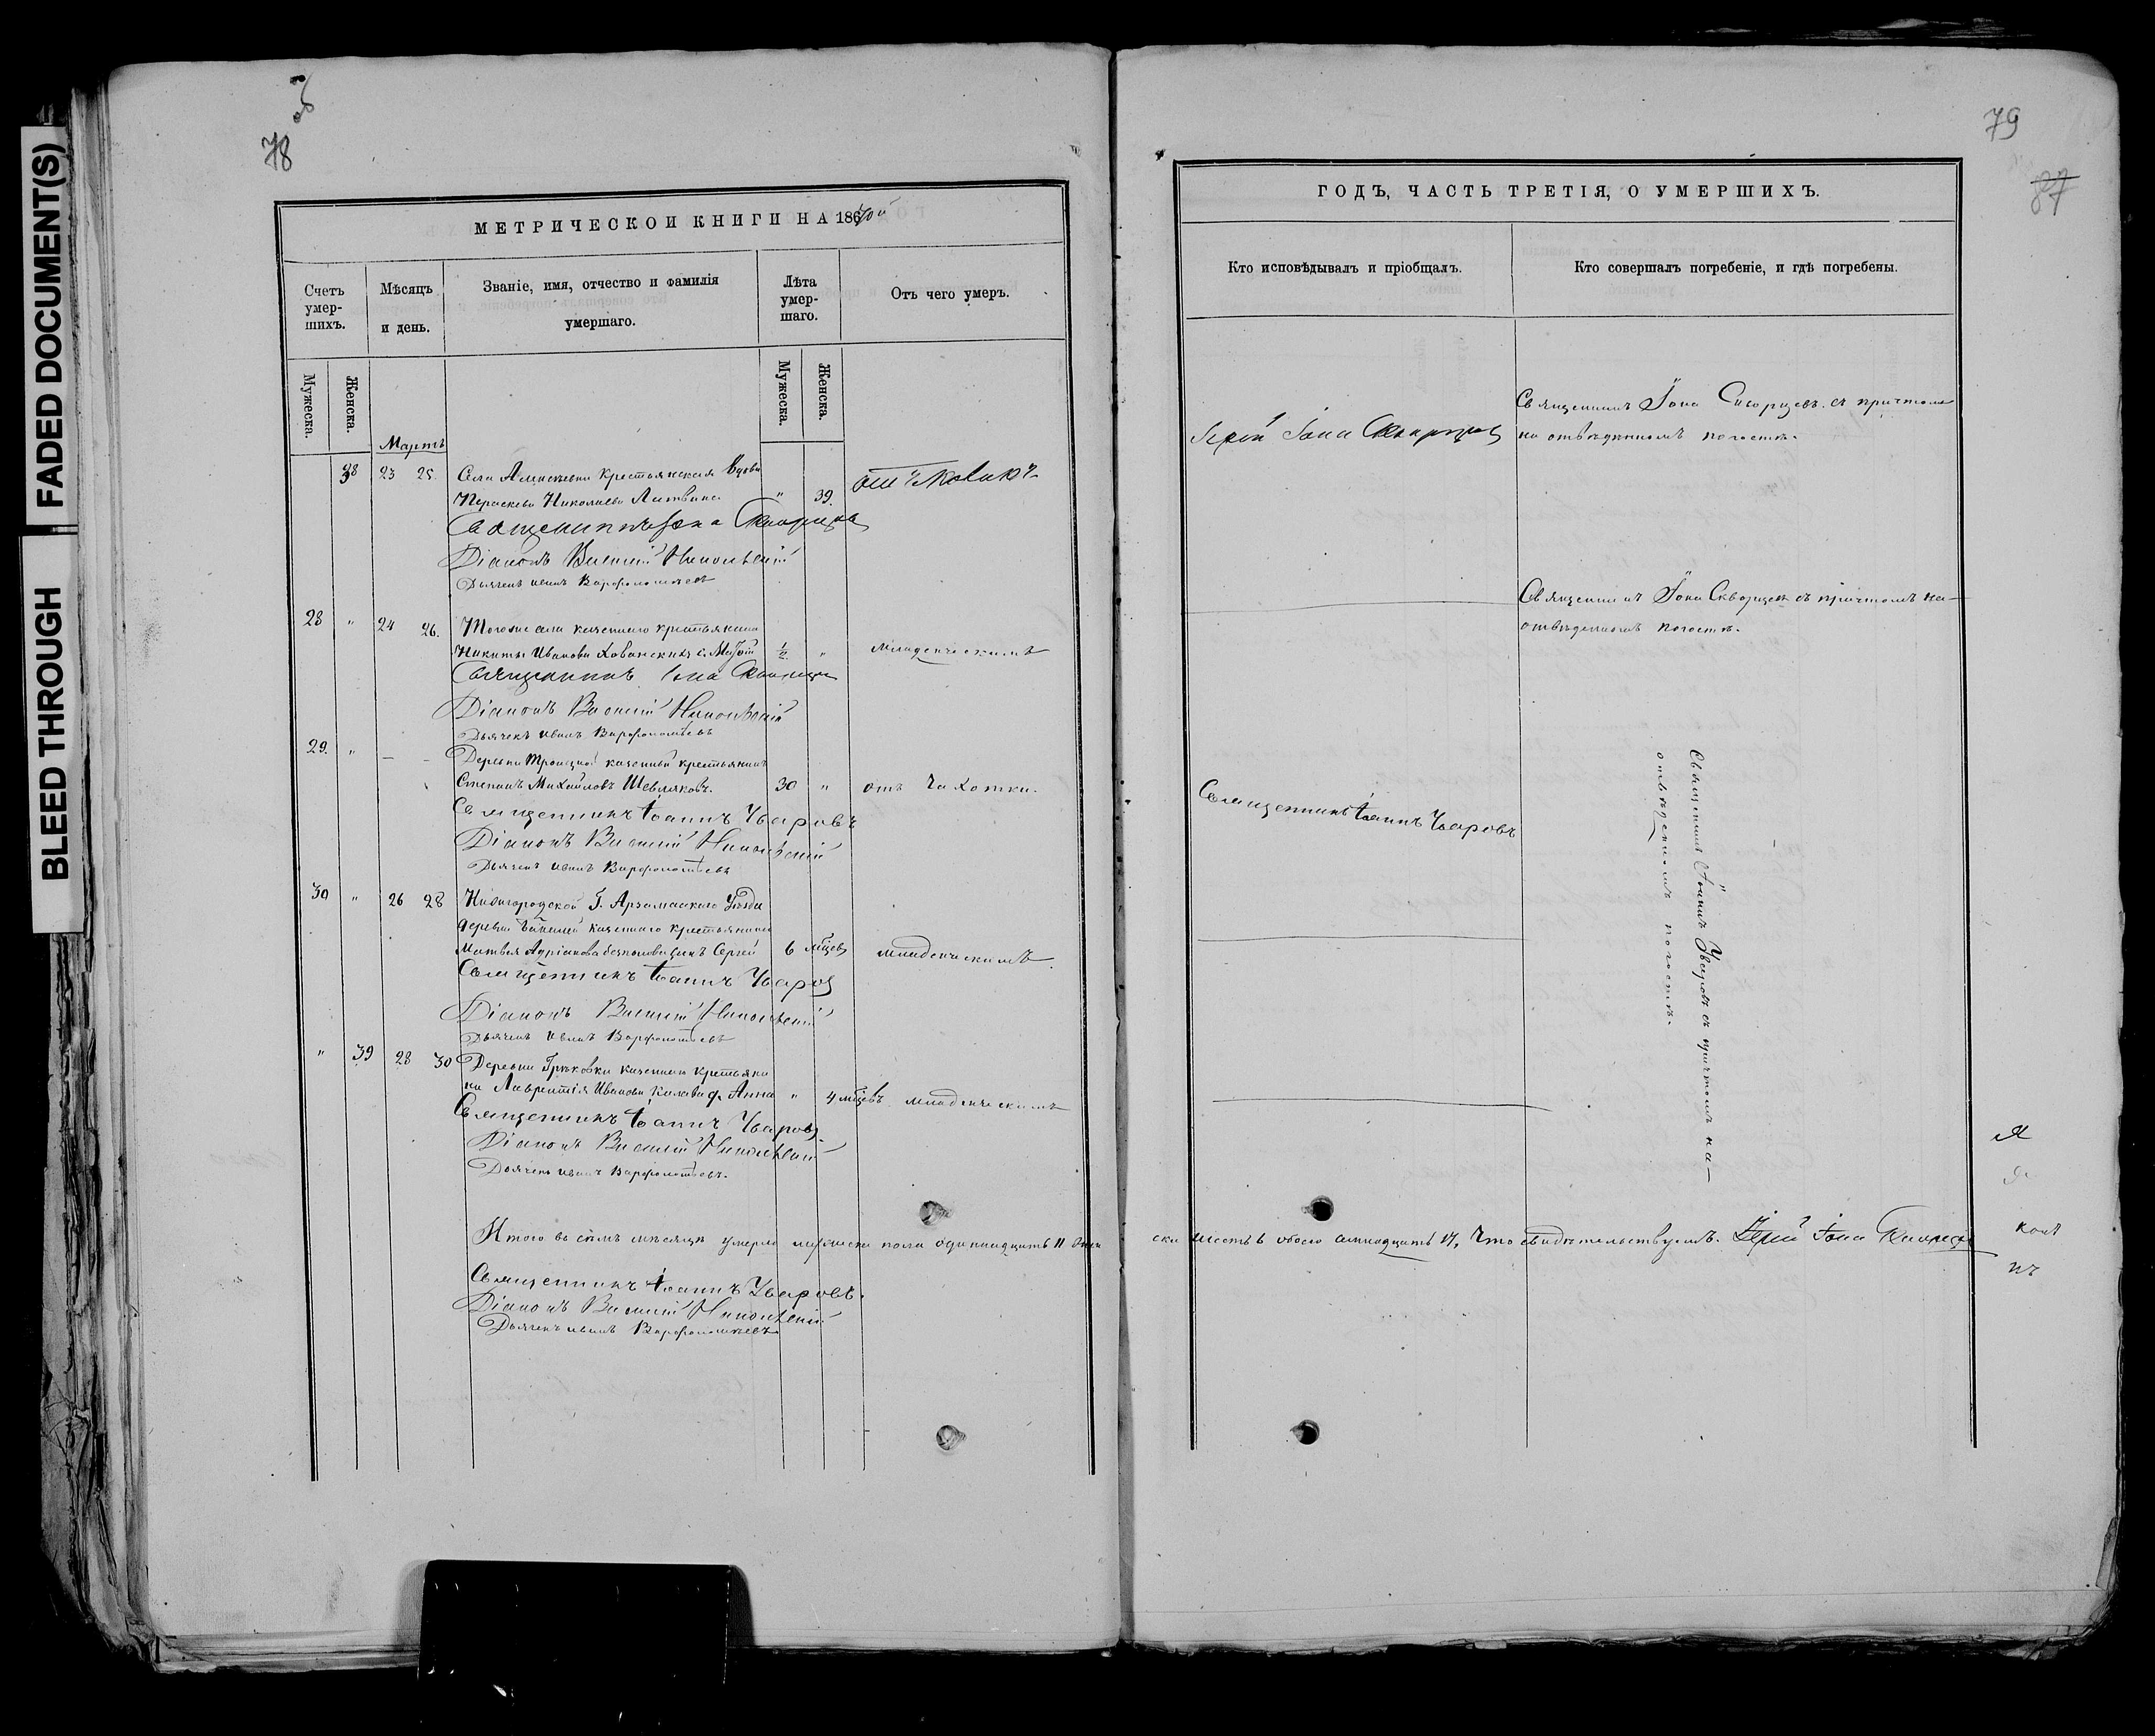 FADED DOCUMENT(S)
BLEED THROUGH
78 об
МЕТРИЧЕСКОЙ КНИГИ НА 1870й
Счетъ умершихъ.
Мѣсяцъ и день.
Званіе, имя, отчество и фамилія умершаго.
Лѣта умершаго.
Отъ чего умеръ.
Мужеска.
Женска.
Мужеска.
Женска.
Мартъ
38 23 25. Села крестьянская вдова
Параскева Николаева Литвина " 39.
Священникъ Іона Скворцовъ
Діаконъ Василій Никольскій
Дьячекъ Иванъ Варфоломѣевъ
28 " 24 26. Тогоже села казеннаго крестьянина
Никиты Иванова ½ " младенческимъ
Священникъ Іона Скворцовъ
Діаконъ Василій Никольскій
Дьячекъ Иванъ Варфоломѣевъ
29. " – – Деревни Троицкой казенный крестьянинъ
Степанъ Михайловъ Шевляковъ. 30 " отъ чахотки.
Священникъ Іоаннъ Уваровъ
Діаконъ Василій Никольскій
Дьячекъ Иванъ Варфоломѣевъ
30 " 26 28 Нижегородской Г. Арзамаскаго Уѣзда
деревни казеннаго крестьянина
Матвея Адріанова сынъ Сергѣй 6 мѣсцевъ младенческимъ
Священникъ Іоаннъ Уваровъ
Діаконъ Василій Никольскій
Дьячекъ Иванъ Варфоломѣевъ
" 39 28 30 Деревни Грековки казеннаго крестьяни
на Лаврентія Иванова д. Анна " 4 мѣсцевъ младенческимъ
Священникъ Іоаннъ Уваровъ
Діаконъ Василій Никольскій
Дьячекъ Иванъ Варфоломѣевъ.
Итого въ семъ мѣсяцѣ умерло мужеска пола одиннадцать 11 жен
Священникъ Іоаннъ Уваровъ.
Діаконъ Василій Никольскій
Дьячекъ Иванъ Варфоломѣевъ
79
87
ГОДЪ, ЧАСТЬ ТРЕТІЯ, О УМЕРШИХЪ.
Кто исповѣдывалъ и пріобщалъ.
Кто совершалъ погребеніе, и гдѣ погребены.
Іерей Іона Скворцовъ
Священникъ Іона Скворцовъ съ причтомъ
на отведенномъ погостѣ.
Священникъ Іона Скворцовъ съ причтомъ на
отведенномъ погостѣ.
Священникъ Іоаннъ Уваровъ
Священникъ Іоаннъ Уваровъ съ причтомъ на
отведенномъ погостѣ.
ска шесть 6 обоего семнадцать 17, что свидѣтельствуемъ. Іерей Іона Скворцовъ